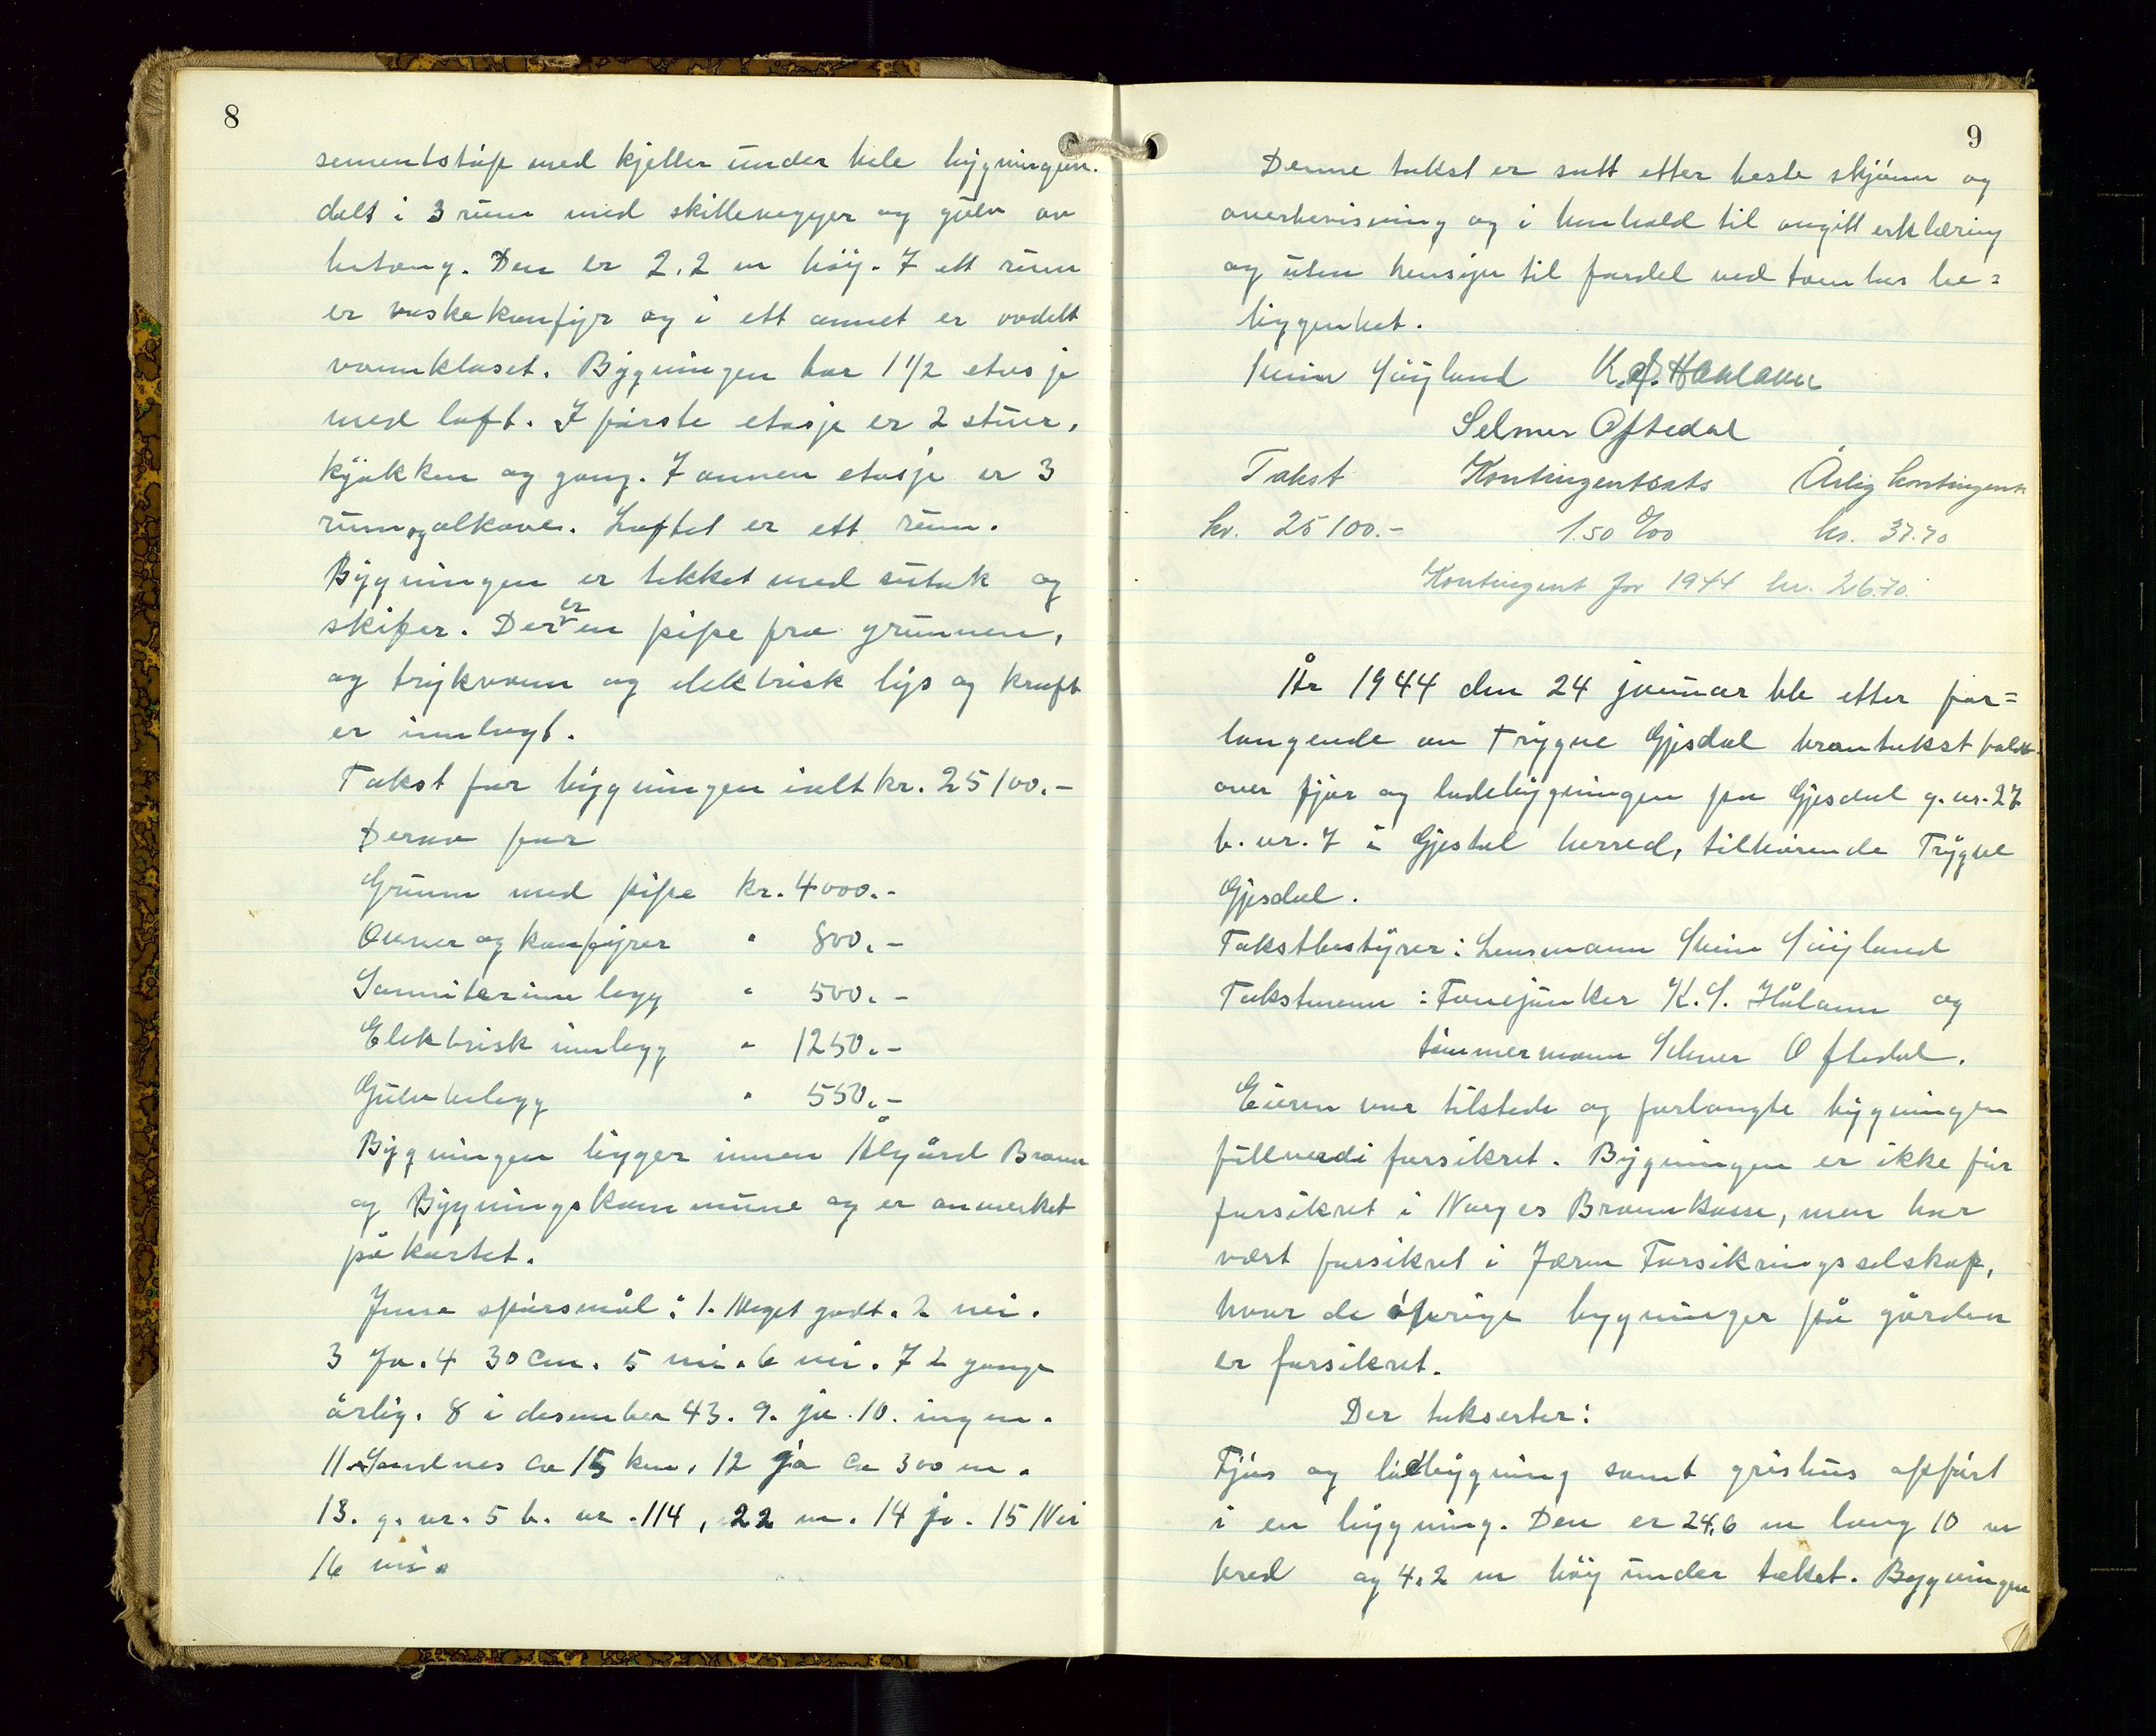 8
sementstøp med kjeller under hele bygningen.
delt i 3 rum med skillevegger og gulv av
betong. Den er 2,2 m høy. I ett rum
er vaskekomfyr og i ett annet er avdelt
vannkloset. Bygningen har 1 1/2 etasje
med loft. I første etasje er 2 stuer,
kjøkken og gang. I annen etasje er 3
rum og alkove. Loftet er ett rum.
Bygningen er tekket med sutak og
skifer. Der er en pipe fra grunnen,
og trykvann og elektrisk lys og kraft
er innlagt.
Takst for bygningen ialt kr. 25100.-
Derav for
Grunn med pipe kr. 4000.-
Ovner og komfyrer " 800.-
Sannitærinnlegg " 500.-
Elektrisk innlegg " 1250.-
Gulvbelegg " 550.-
Bygningen ligger innen Ålgård Brann
og Bygningskommune og er anmerket
på kartet.
Jmse spørsmål: 1. Meget godt. 2 nei.
3 Ja. 4 30 cm. 5 nei. 6 nei. 7 2 gange
årlig. 8 i desember 43. 9. ja. 10. ingen.
11. Sandnes ca 15 km. 12 ja ca 300 m.
13. g. nr. 5 b. nr. 114, 22 m. 14 ja. 15 Nei
16 nei.
9
Denne takst er satt etter beste skjønn og
overbevisning og i henhold til avgitt erklæring
og uten hensyn til fordel ved tomtens be=
liggenhet.
Svein Søyland K. S. Haaland
Selmer Oftedal
Takst Kontingentsats Årlig kontingent
kr. 25100.- 1.50 ‰ kr. 37.70
Kontingent for 1944 kr. 26.70.
År 1944 den 24 januar ble etter for=
langende av Trygve Gjesdal branntakst holdt
over fjøs og ladebygningen på Gjesdal g. nr. 27
b. nr. 7 i Gjesdal herred, tilhørende Trygve
Gjesdal.
Takstbestyrer: Lensmann Svein Søyland
Takstmenn: Fanejunker K. S. Håland og
tømmermann Selmer Oftedal.
Eieren var tilstede og forlangte bygningen
fullverdi forsikret. Bygningen er ikke før
forsikret i Norges Brannkasse, men har
vært forsikret i Jæren Forsikringsselskap,
hvor de øvrige bygninger på gården
er forsikret.
Der takserter:
Fjøs og ladbygning samt grishus oppført
i en bygning. Den er 24,6 m lang 10 m
bred og 4,2 m høy under taket. Bygningen